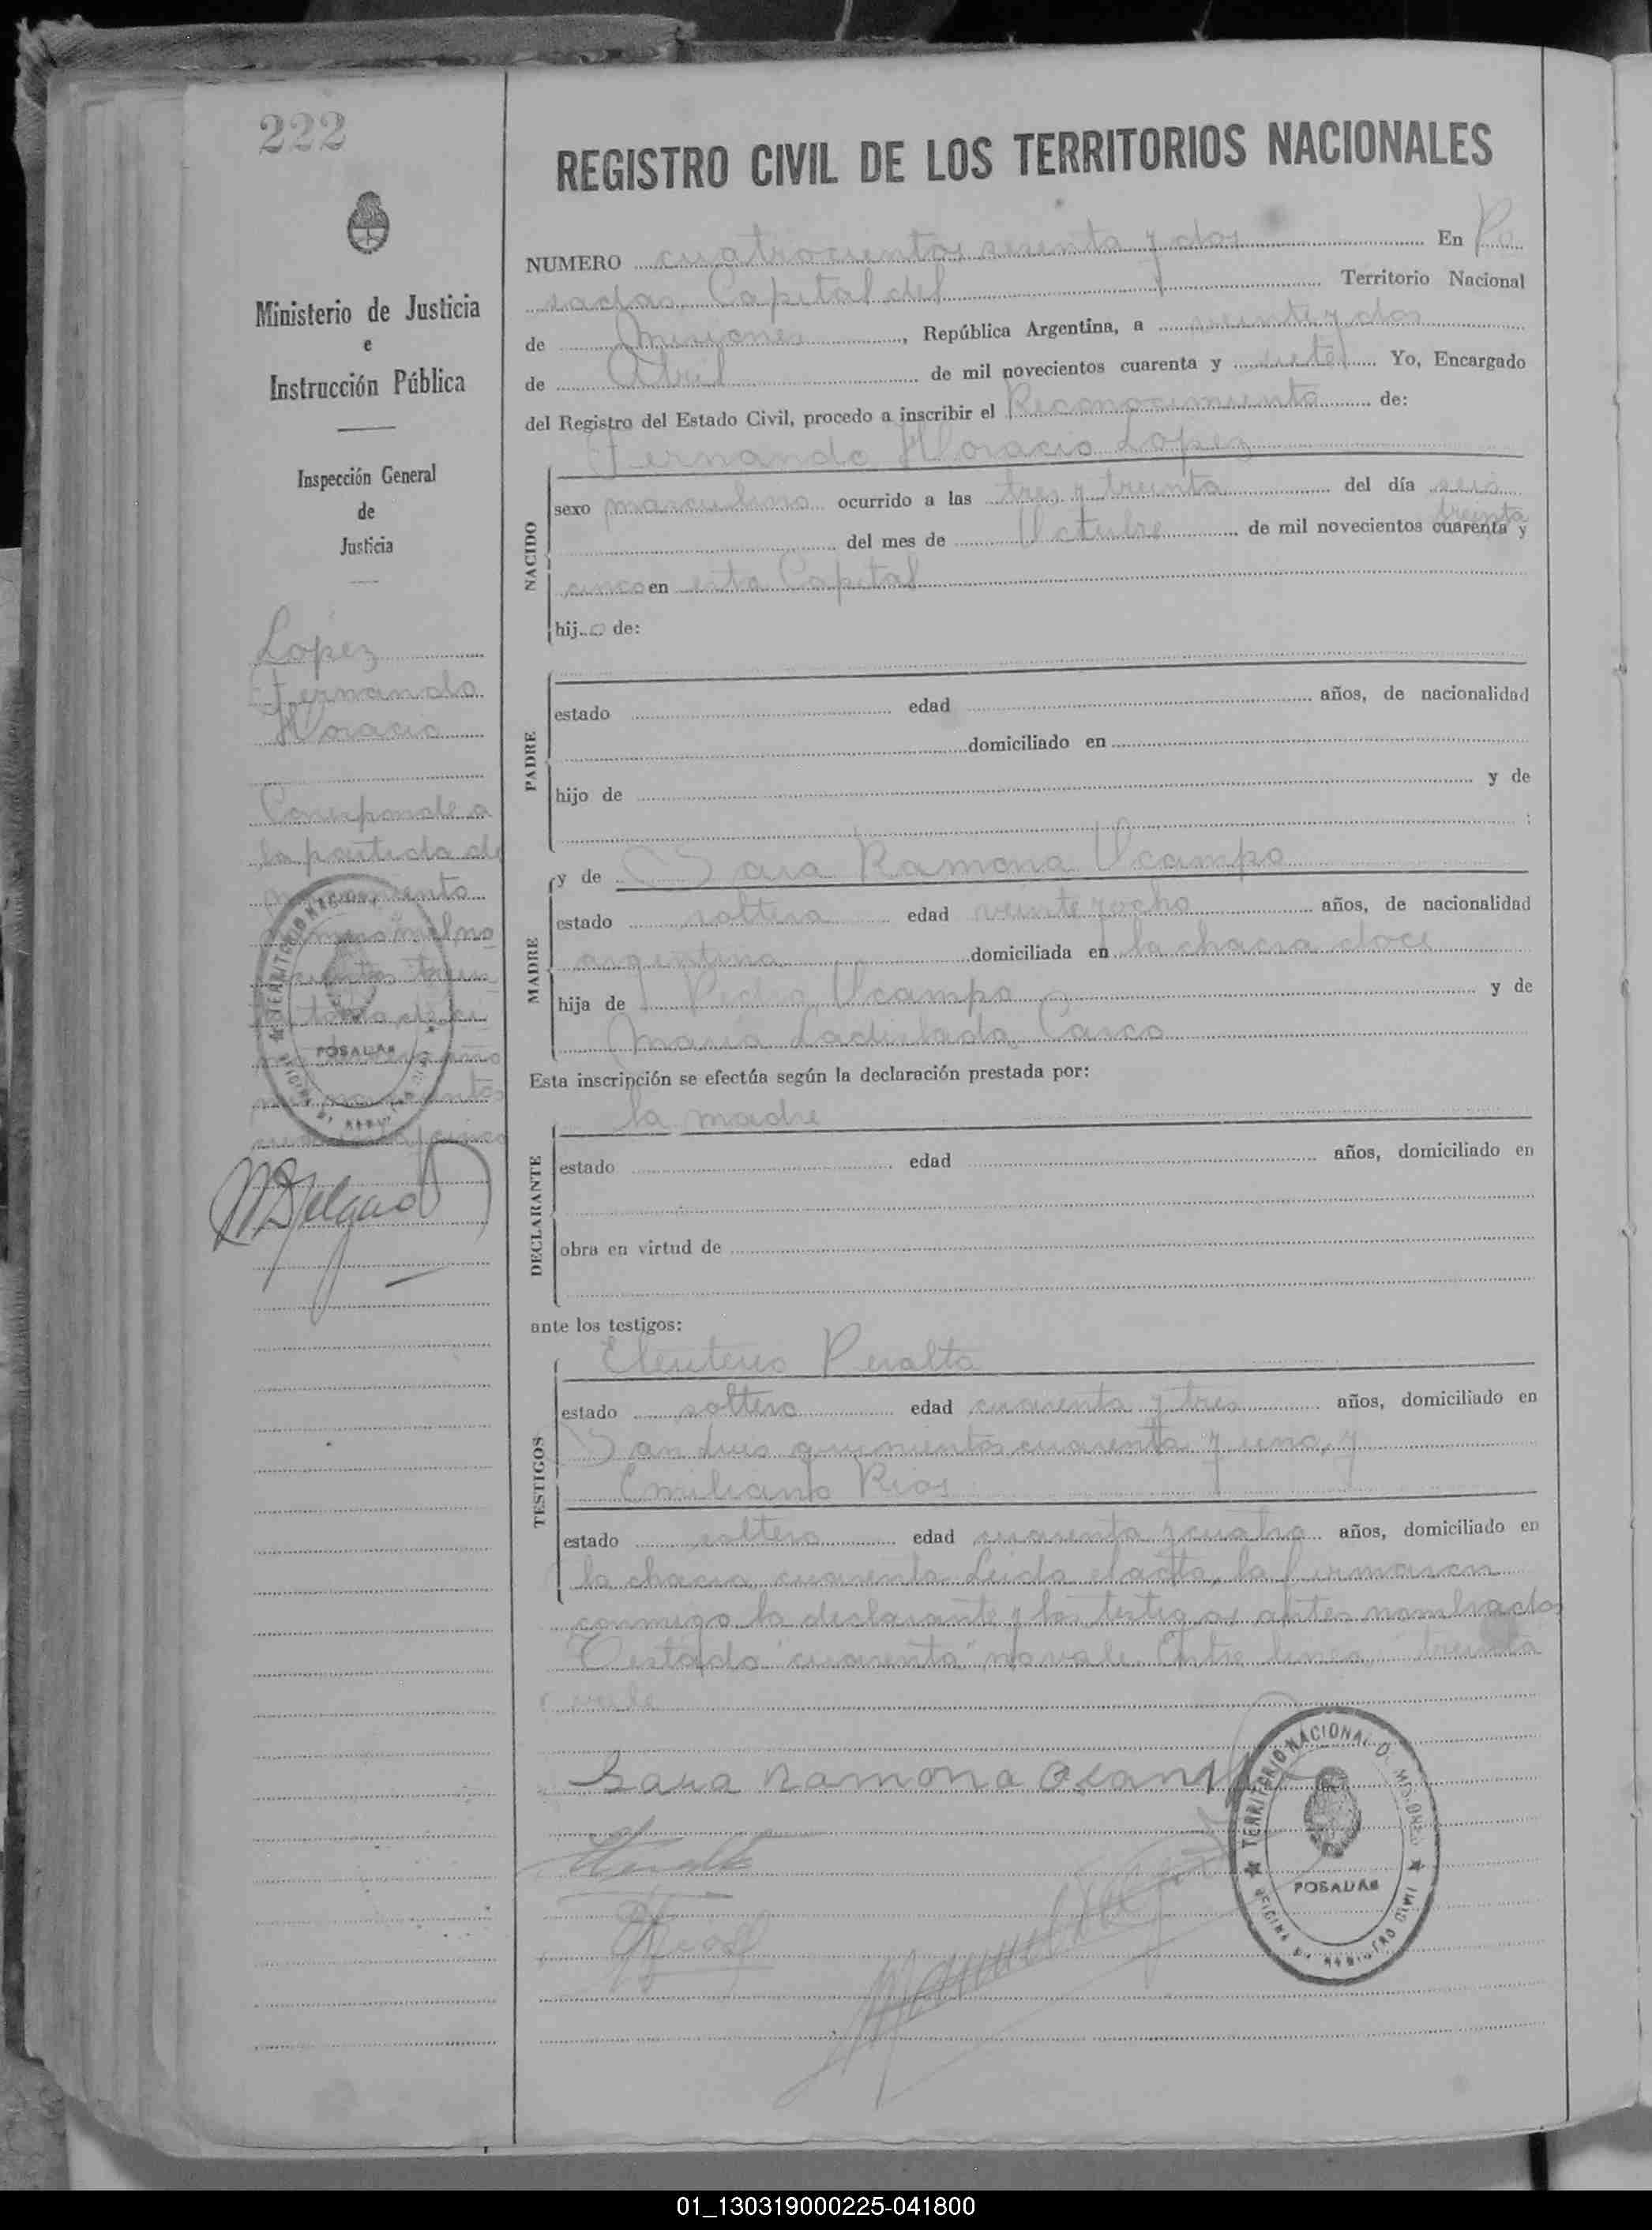 222
Ministerio de Justicia
e
Instrucción Pública
Inspección General
de
Justicia
Lopez
Fernando
Horacio
Corresponde a
la partida de
nacimiento
número mil no
POSADAS
MDelgado
REGISTRO CIVIL DE LOS TERRITORIOS NACIONALES
NUMERO cuatrocientos sesenta y dos En Po
sadas, Capital del Territorio Nacional
de Misiones, República Argentina, a veinte y dos
de Abril de mil novecientos cuarenta y siete Yo, Encargado
del Registro del Estado Civil, procedo a inscribir el Reconocimiento de:
Fernando Horacio Lopez
NACIDO
sexo masculino ocurrido a las tres y treinta del día seis
treinta
del mes de Octubre de mil novecientos cuarenta y
cinco en esta Capital
hijo de:
PADRE
estado edad años, de nacionalidad
domiciliado en
hijo de y de
:
MADRE
y de Sara Ramona Ocampo
estado soltera edad veinte y ocho años, de nacionalidad
argentina domiciliada en la chacra doce
hija de Pedro Ocampo y de
Maria Ladislada Casco
Esta inscripción se efectúa según la declaración prestada por:
la madre
DECLARANTE
estado edad años, domiciliado en
obra en virtud de
ante los testigos:
TESTIGOS
Eleuterio Peralta
estado soltero edad cuarenta y tres años, domiciliado en
San Luis quinientos cuarenta y uno, y
Emiliano Rios
estado soltero edad cuarenta y cuatro años, domiciliado en
la chacra cuarenta. Leida el acta, la firmaron
conmigo la declarante y los testigos antes nombrados
Testado "cuarenta" no vale. Entre linea "treinta"
vale
Sara Ramona Ocampo
TERRITORIO NACIONAL D. MISIONES
POSADAS
OFICINA DE REGISTRO CIVIL
01_130319000225-041800